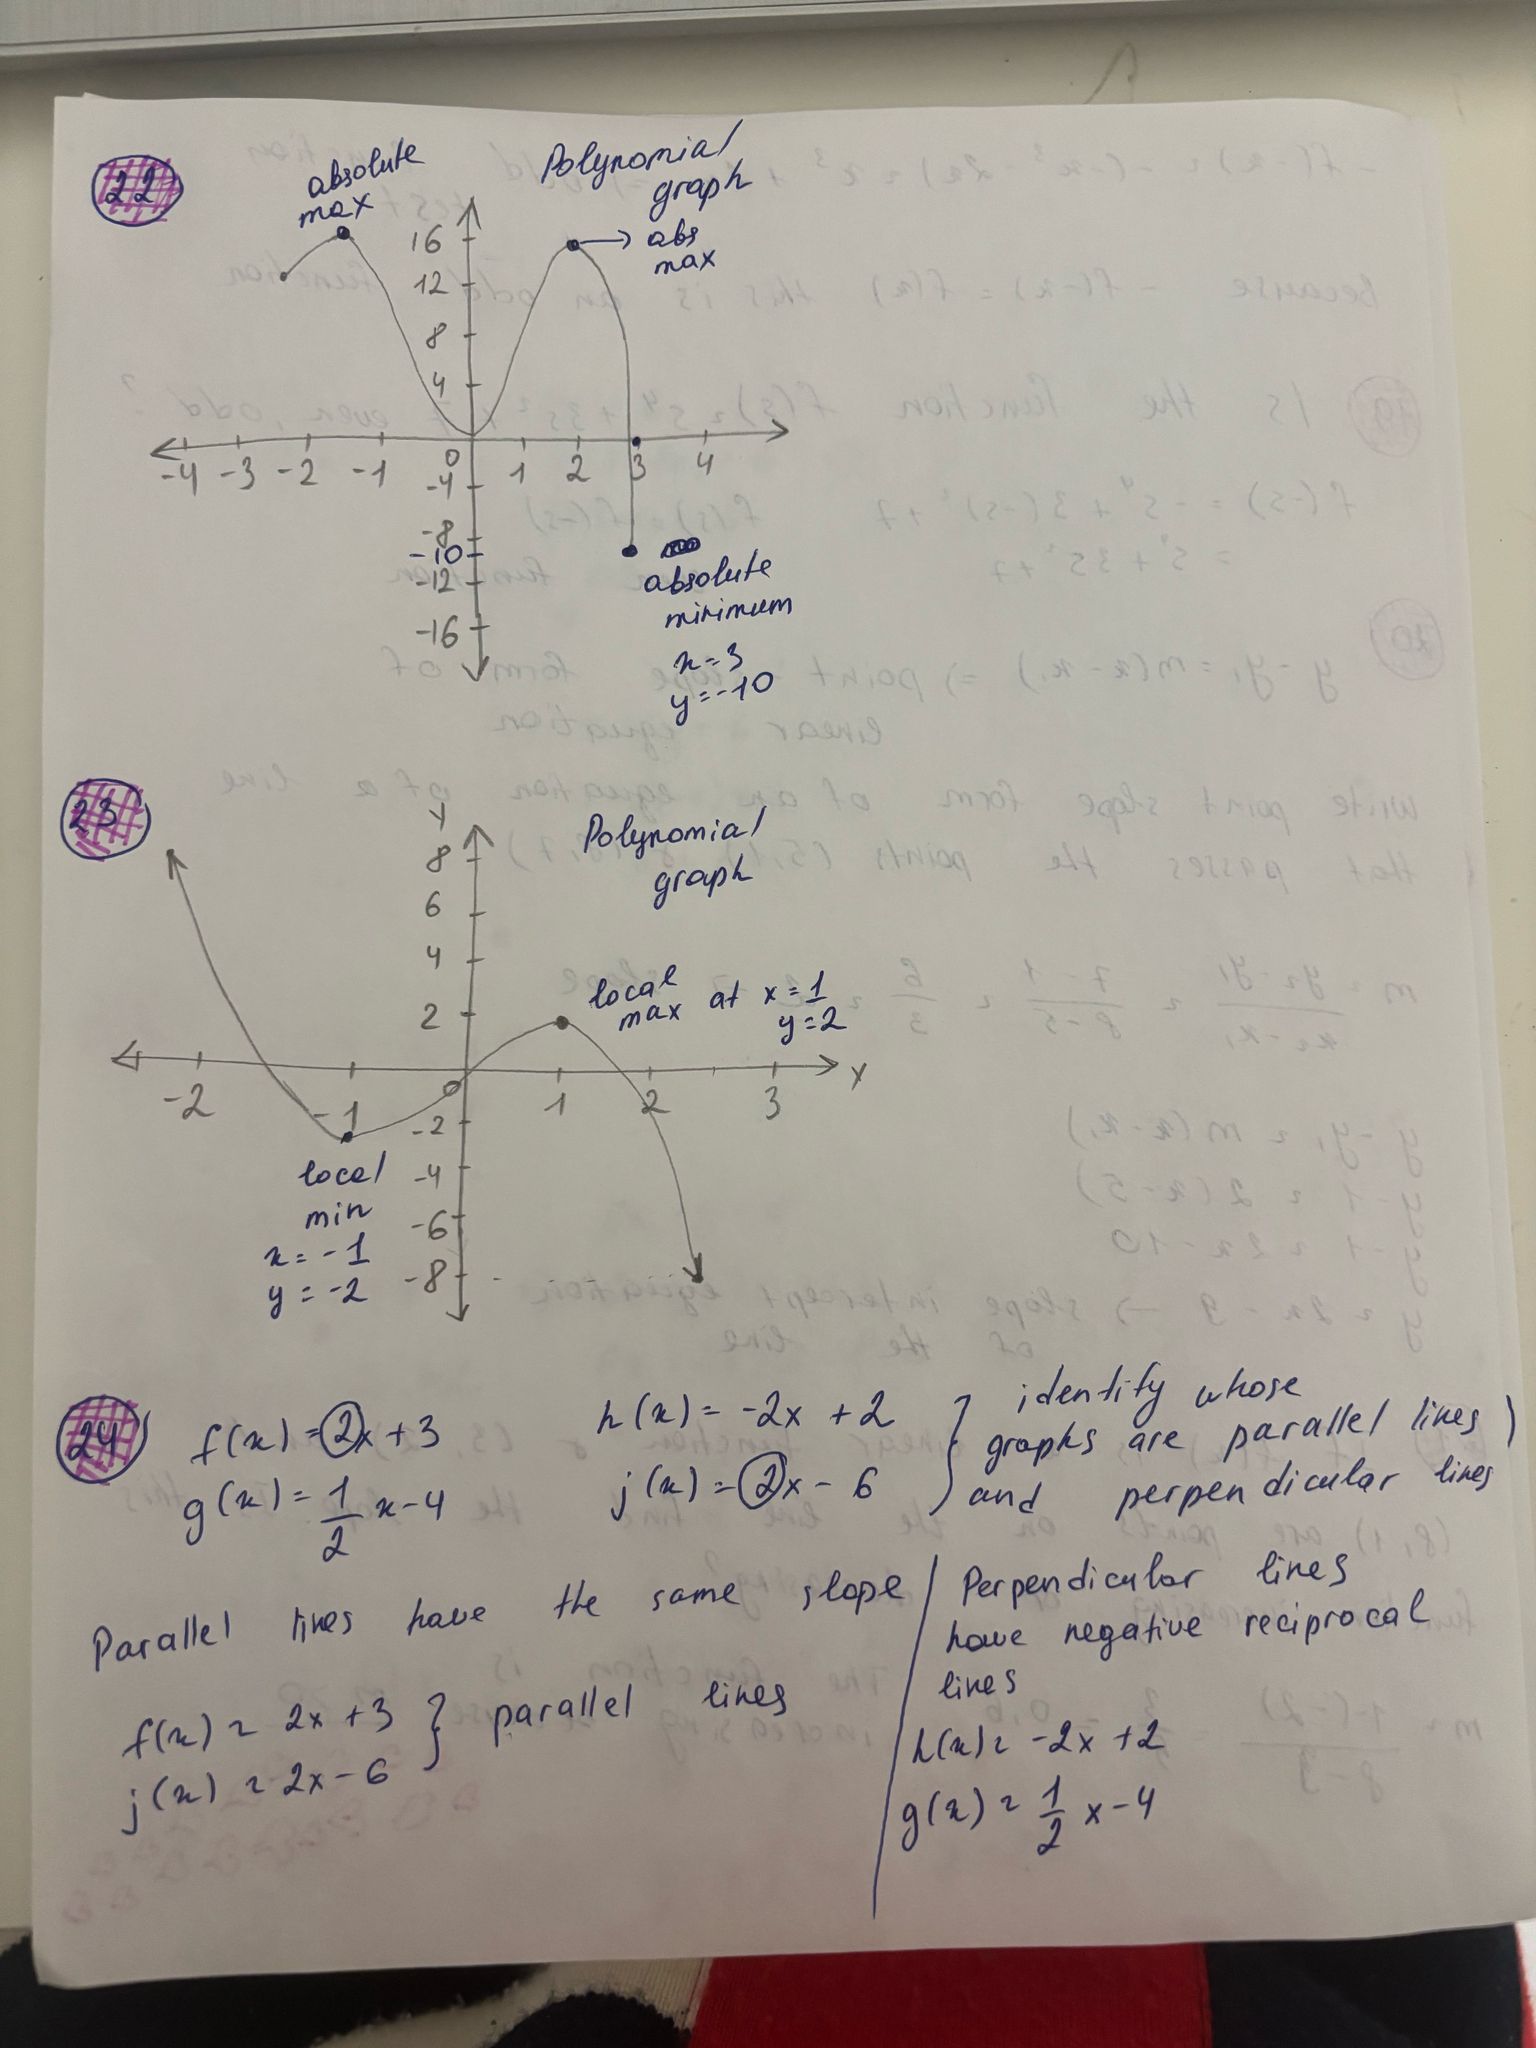 22
absolute
max
Polynomial
graph
abs
max
16
12
8
4
-4 -3 -2 -1 0 1 2 3 4
-4
-8
-10
-12
-16
absolute
minimum
x=3
y=-10
23
y
Polynomial
graph
8
6
4
2
local
max at x=1
y=2
-2 -1 0 1 2 3 x
-2
-4
-6
-8
local
min
x=-1
y=-2
24
f(x)=2x+3
g(x)=1/2 x-4
h(x)=-2x+2
j(x)=2x-6
} identify whose
graphs are parallel lines
and perpendicular lines
Parallel lines have the same slope
f(x)=2x+3
j(x)=2x-6
} parallel lines
Perpendicular lines
have negative reciprocal
lines
h(x)=-2x+2
g(x)=1/2 x-4